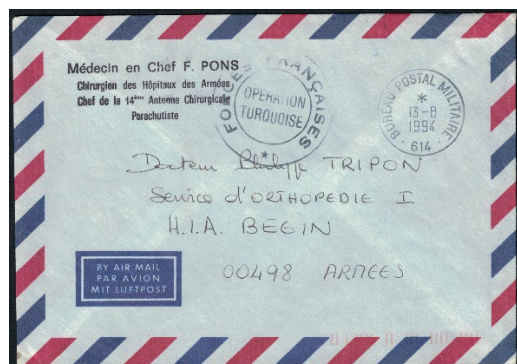 Médecin en Chef F. PONS
Chirurgien des Hôpitaux des Armées
Chef de la 14ème Antenne Chirurgicale
Parachutiste
FORCES FRANÇAISES
OPERATION
TURQUOISE
*
BUREAU POSTAL MILITAIRE
*
13-8
1994
614
Docteur Philippe TRIPON
Service d'ORTHOPEDIE I
H.I.A. BEGIN
00498 ARMEES
BY AIR MAIL
PAR AVION
MIT LUFTPOST